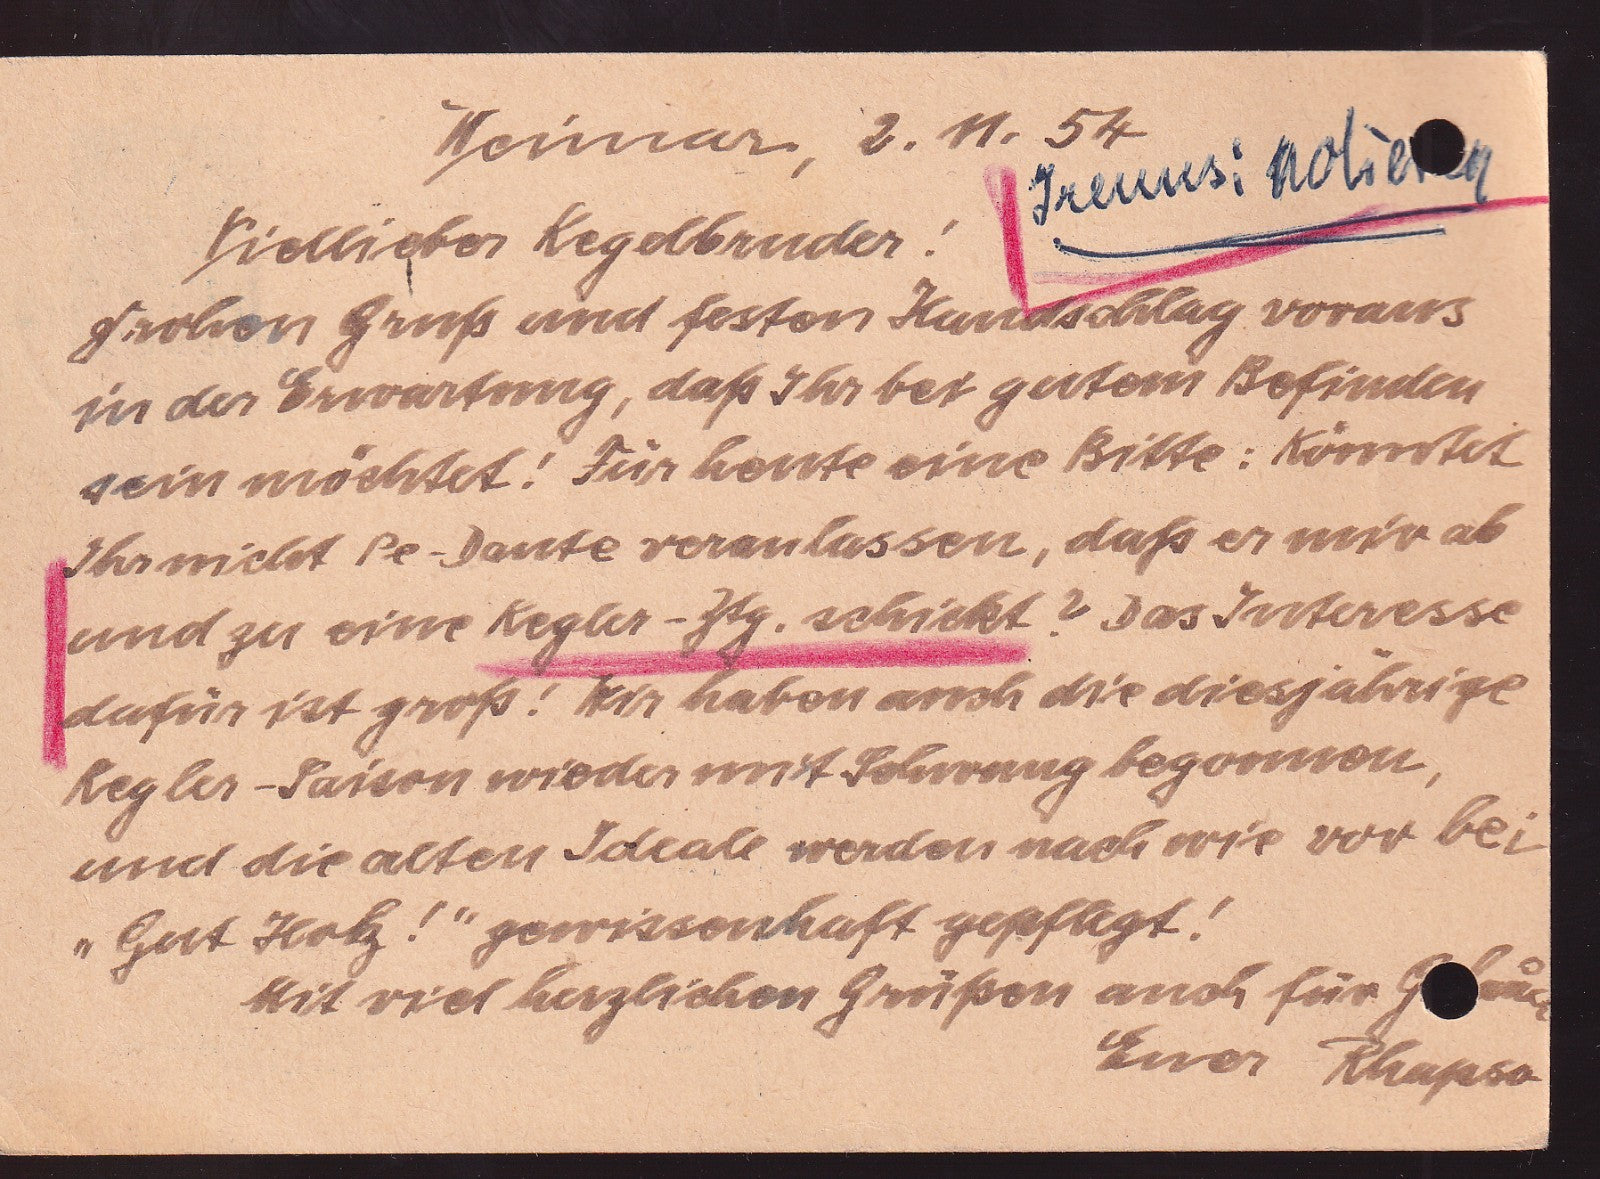 Weimar, 2. 11. 54
notieren
Viellieber Kegelbruder!
Frohen Gruß und festen Handschlag voraus
in der Erwartung, daß Ihr bei gutem Befinden
sein möchtet! Für heute eine Bitte: Könntet
Ihr nicht Pe-Dante veranlassen, daß er mir ab
und zu eine Kegler-Ztg. schickt? Das Interesse
dafür ist groß! Wir haben auch die diesjährige
Kegler-Saison wieder mit Schwung begonnen,
und die alten Ideale werden nach wie vor bei
„Gut Holz!" gewissenhaft gepflegt!
Mit viel herzlichen Grüßen auch für
Euer Rhapso